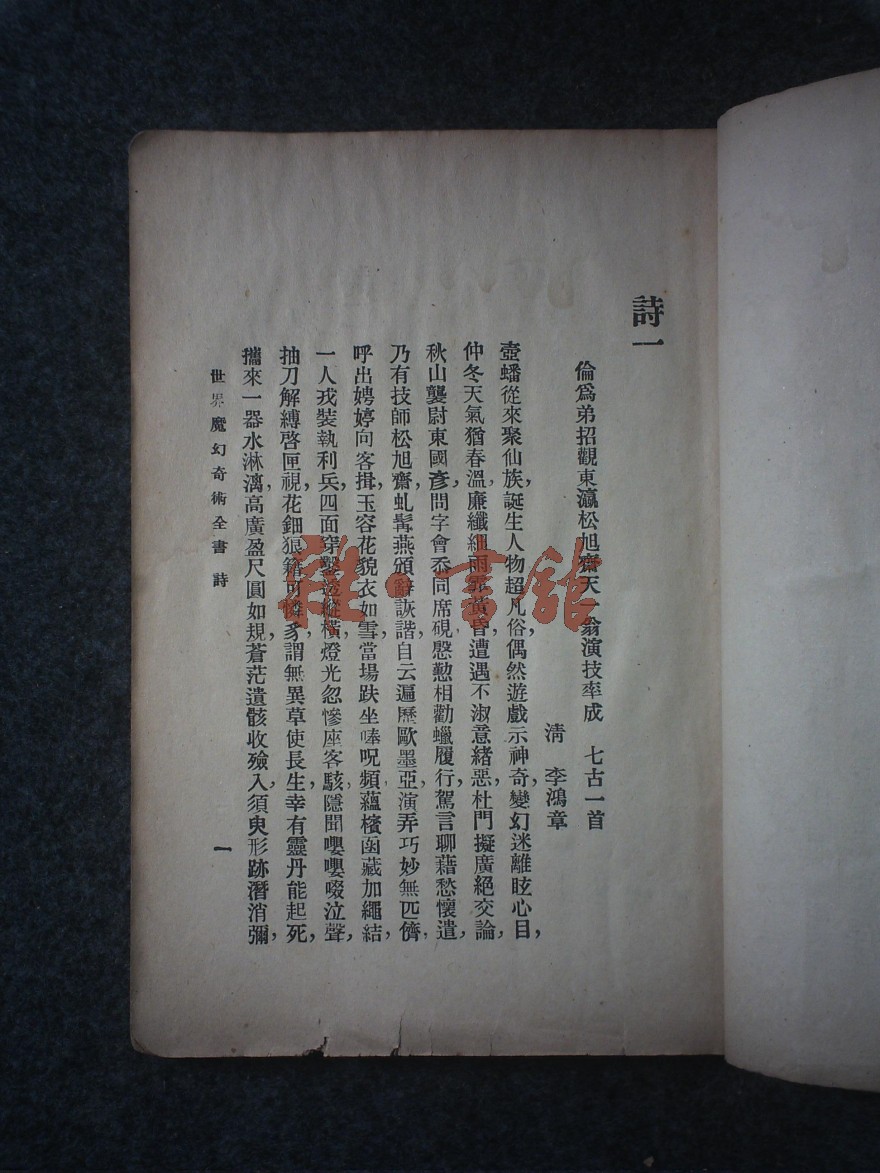 詩一
倫爲弟招觀東瀛松旭齋天一翁演技率成 七古一首
清 李鴻章
壺蟠從來聚仙族，誕生人物超凡俗，偶然遊戲示神奇，變幻迷離眩心目，
仲冬天氣猶春溫，廉纖細雨霏黃昏，遭遇不淑意緒惡，杜門擬廣絕交論，
秋山襲尉東國彥，問字會忝同席硯，慇懃相勸蠟履行，駕言聊藉愁懷遣，
乃有技師松旭齋，虬髯燕頷辭詼諧，自云遍歷歐墨亞，演弄巧妙無匹儕，
呼出娉婷向客揖，玉容花貌衣如雪，當場趺坐唪呪頻，蘊櫝函藏加繩結，
一人戎裝執利兵，四面穿鑿透縱橫，燈光忽慘座客駭，隱聞嚶嚶啜泣聲，
抽刀解縛啓匣視，花鈿狼籍可憐，謂無異草使長生，幸有靈丹能起死，
攜來一器水淋漓，高廣盈尺圓如規，蒼茫遺骸收殮入，須臾形跡潛消彌，
世界魔幻奇術全書 詩 一
雜·書館